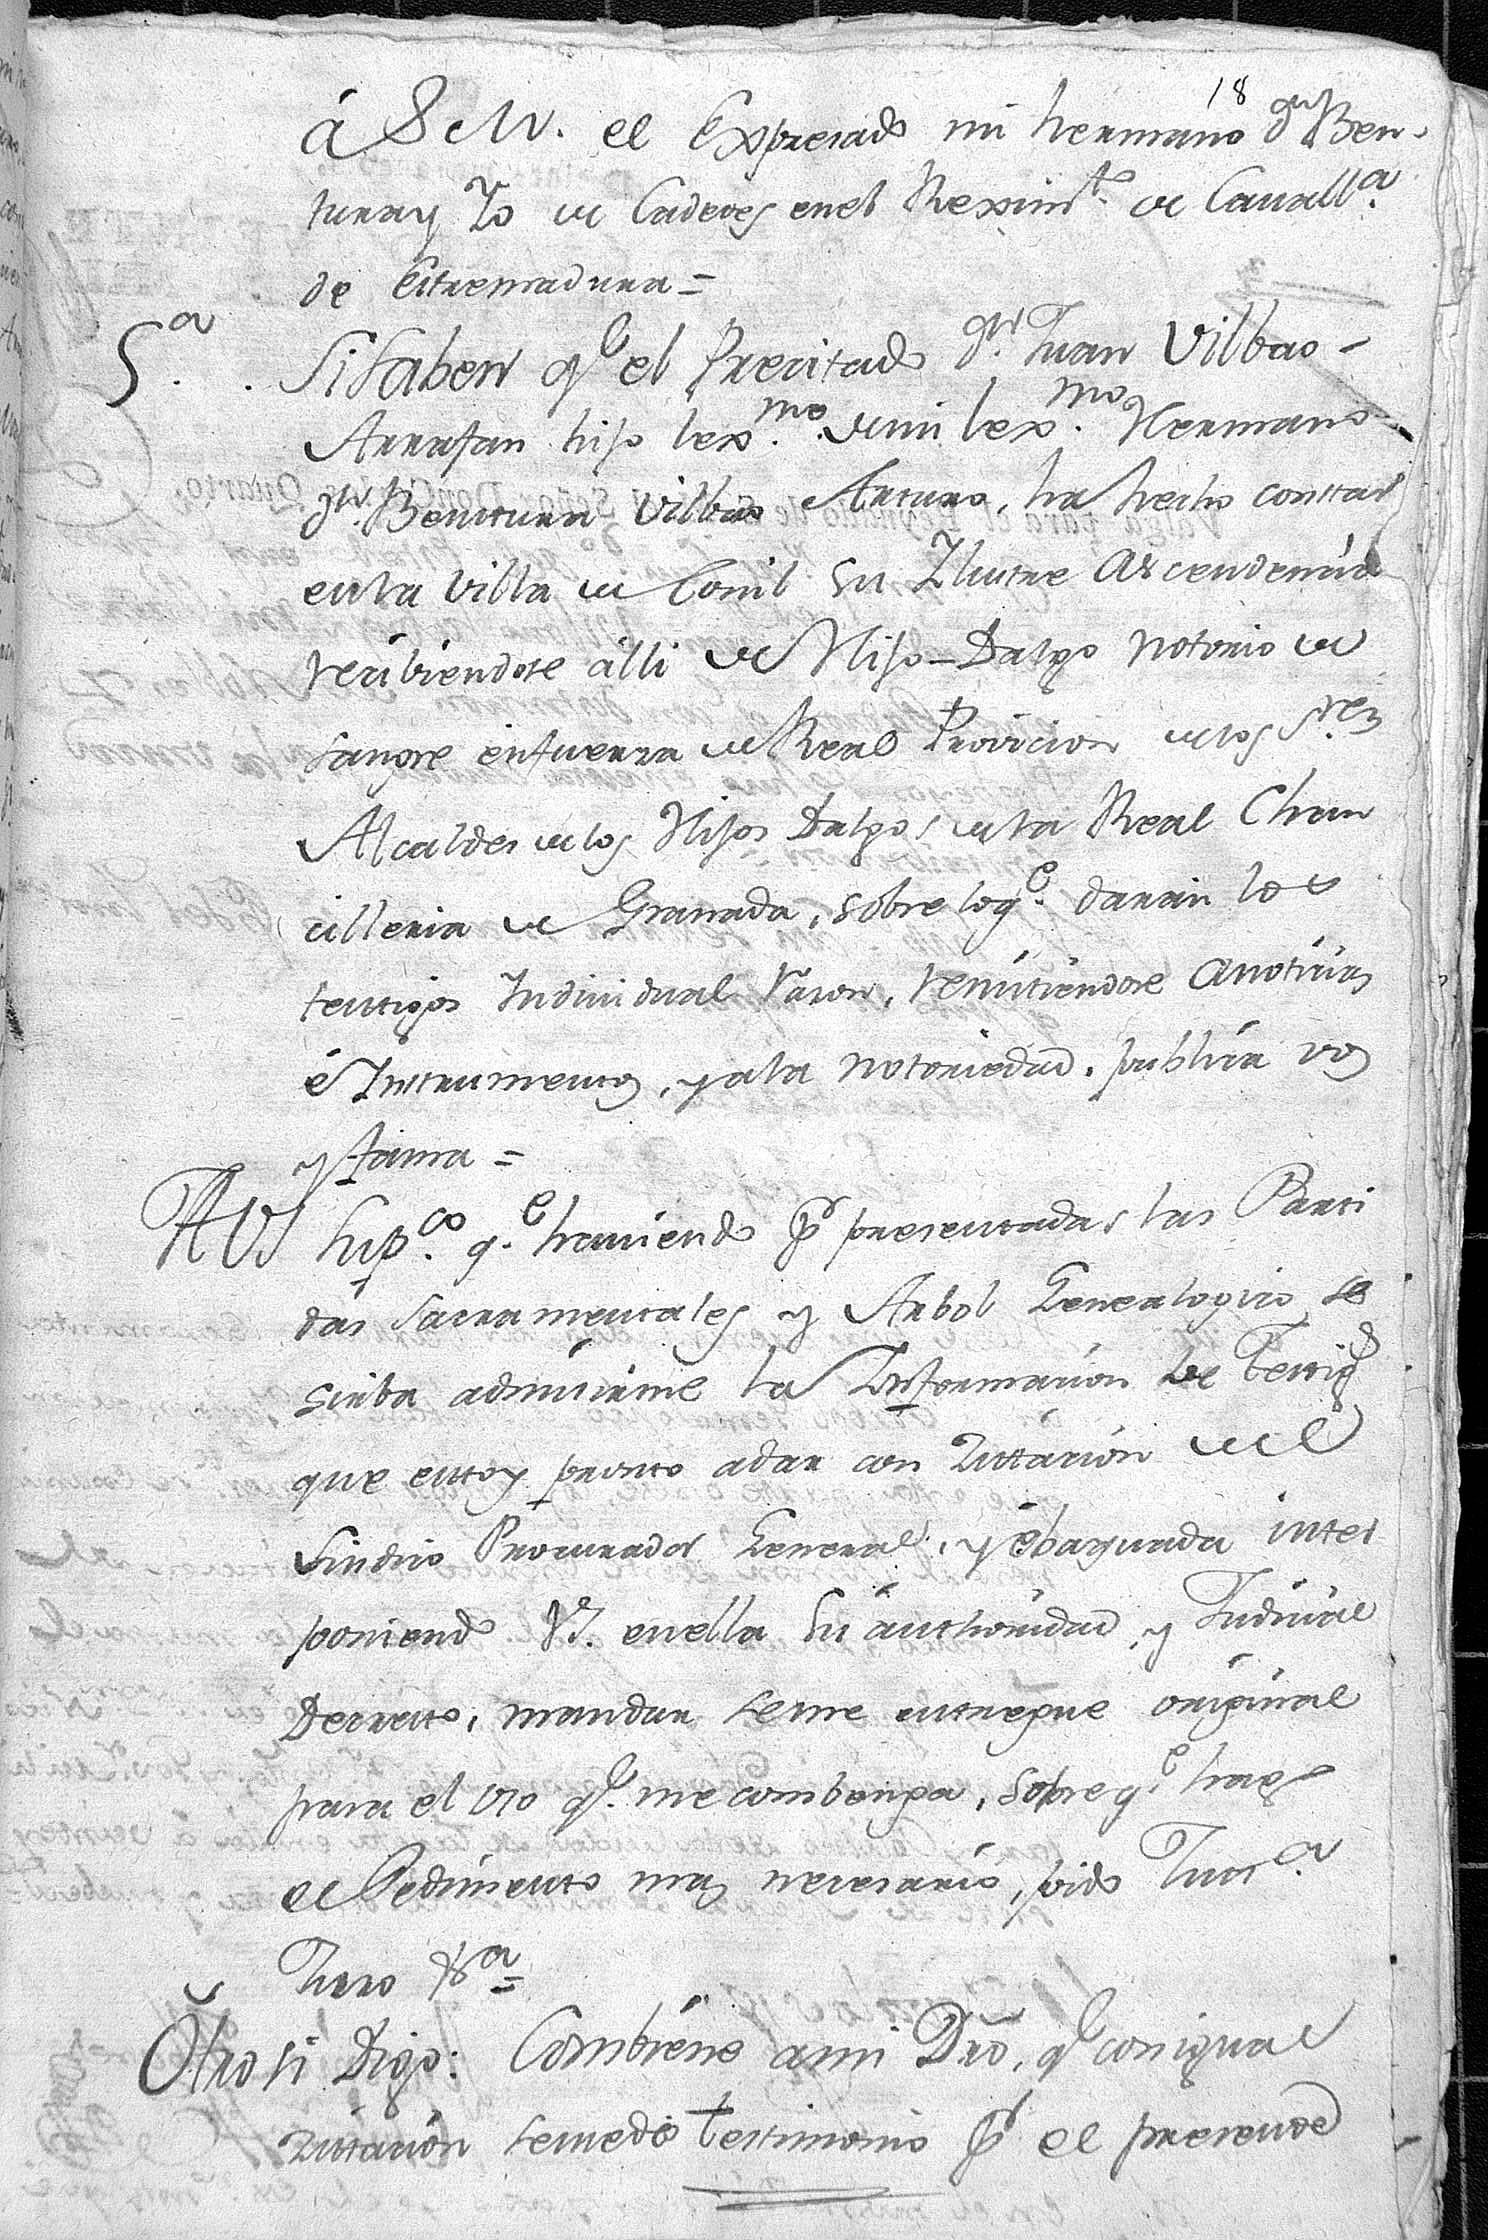 18
á S. M. el Expresado mi hermano Dn. Ben-
tura y Yo de Cadetes en el Reximto. de Cavalla.
de Estremadura =
5a. Si saben qe el Precitado Dn. Juan Vilbao -
Arrafan hijo lexmo. de mi lexmo. Hermano
Dn. Bentura Vilbao Arturo, ha hecho constar
en la Villa de Conil su Ylustre Ascendencia
recibiendose álli de Hijo-Dalgo notorio de
sangre en fuerza de Real Provicion de los Sres.
Alcaldes de los Hijos Dalgos de la Real Chan
cilleria de Granada, sobre lo qe. daran los
testigos Individual razon, remitiendose a noticias
é Instrumentos, y a la notoriedad, publica vos
y fama =
A VS supco. qe. haviendo pr presentadas las Parti
das Sacramentales y Arbol Genealogico se
sirba admitirme la Informacion de Testigs
que estoy pronto a dar con Zittacion del
Sindico Procurador General, y ebaquada inter
poniendo VS. en ella su authoridad y Judicial
Decreto, mandar se me entregue original
para el vso qe. me combenga, sobre qe. hago
el Pedimento mas necesario, pido Justa.
Juro &a =
Otro si Digo: Combiene a mi Dro, qe con igual
Zittacion se me dé testimonio pr el presente